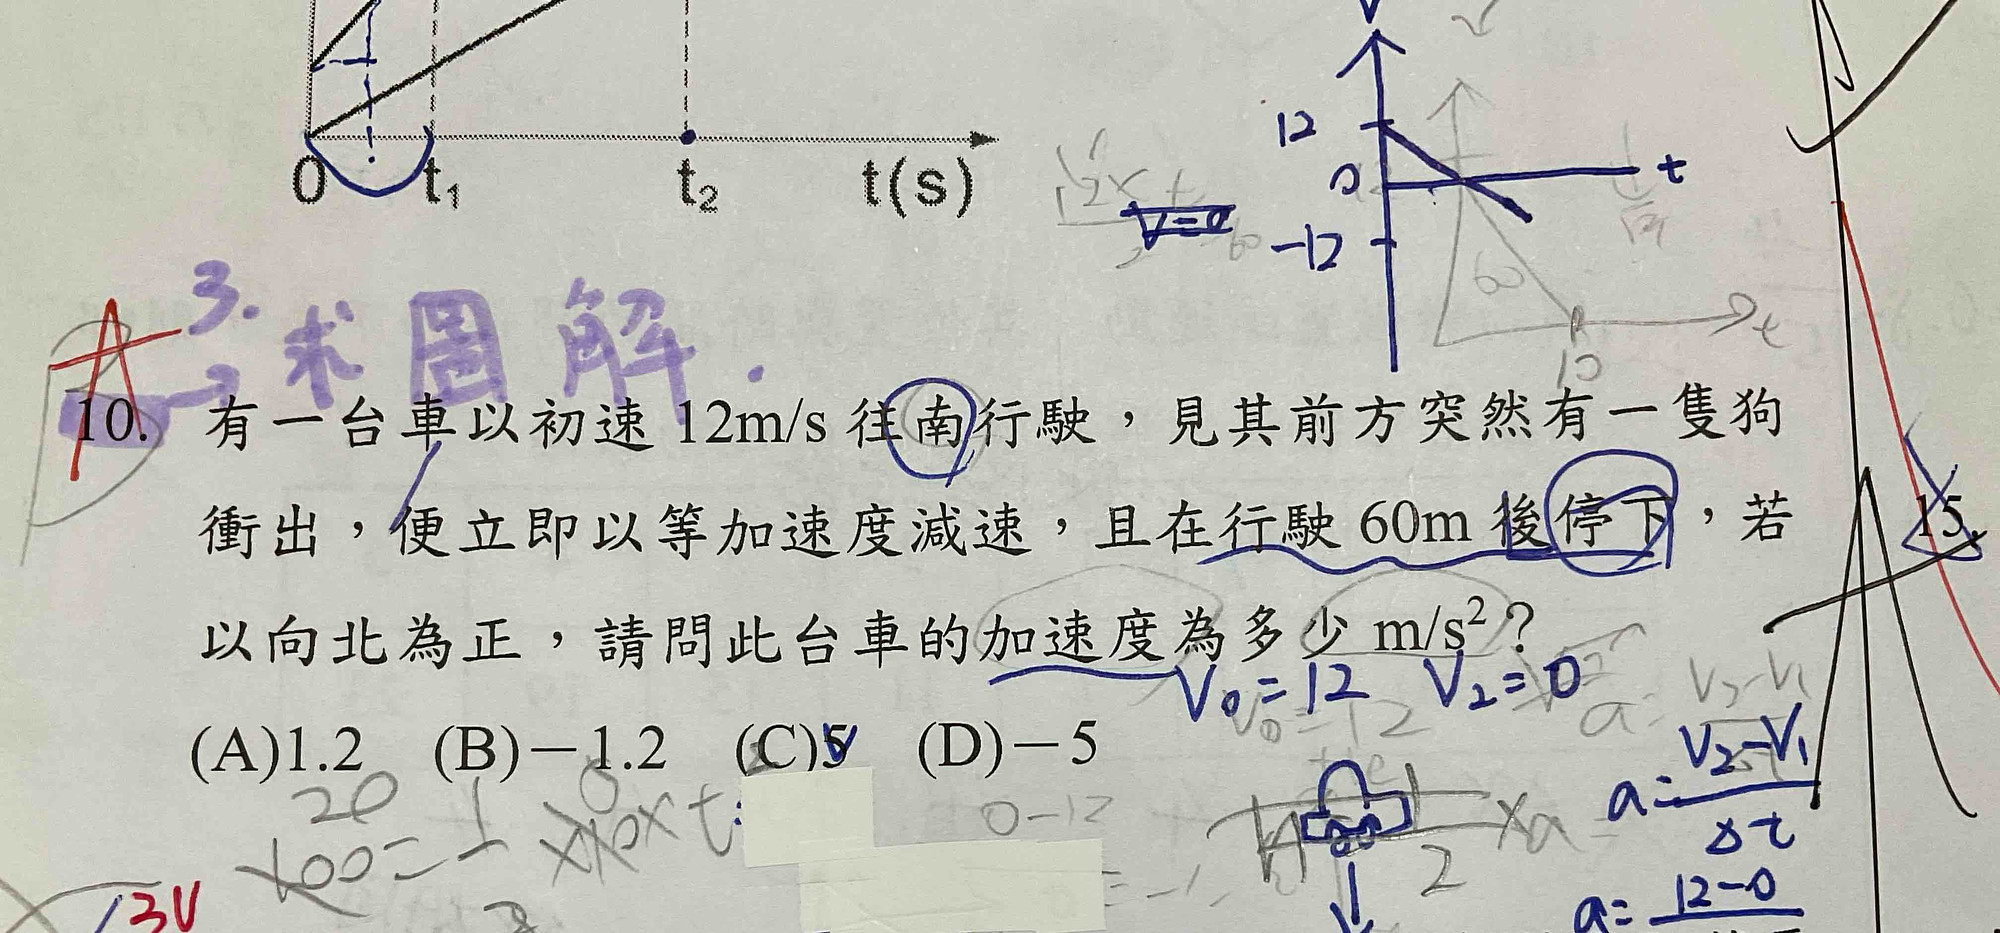 V
12
0 t
-12
V=0
60
t
10
0 t₁ t₂ t(s)
3.
求圖解.
A
10. 有一台車以初速 12m/s 往南行駛，見其前方突然有一隻狗
衝出，便立即以等加速度減速，且在行駛 60m 後停下，若
以向北為正，請問此台車的加速度為多少 m/s²？
V₀=12 V₂=0
V₀=12
(A)1.2 (B)－1.2 (C)5 (D)－5
15
a=V₂-V₁
V₂-V₁
a=
Δt
20
100=
0-12
2
×a
12-0
a=
3V